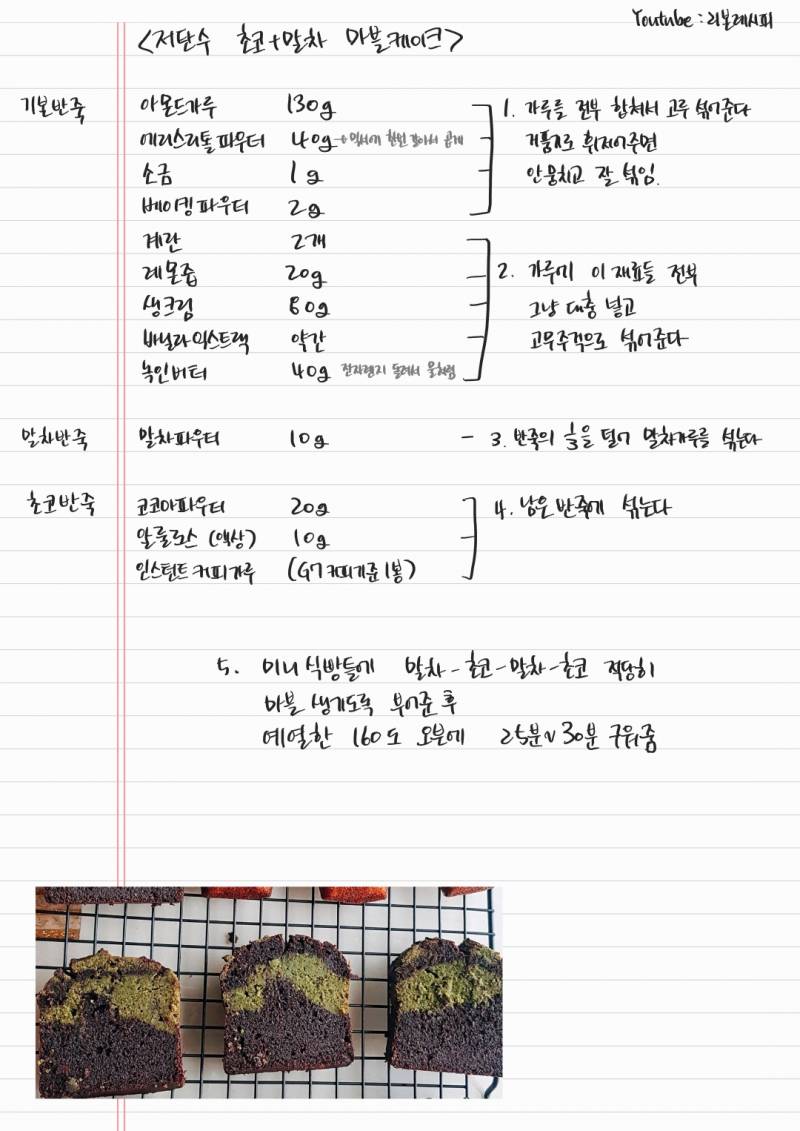 Youtube : 리본레시피
<저탄수 초코+말차 마블케이크>
기본반죽 아몬드가루 130g 1. 가루를 전부 합쳐서 고루 섞어준다
에리스리톨파우더 40g → 믹서에 한번 갈아서 곱게 거품기로 휘저어주면
소금 1g 안뭉치고 잘 섞임.
베이킹파우더 2g
계란 2개
레몬즙 20g 2. 가루에 이 재료들 전부
생크림 80g 그냥 대충 넣고
바닐라익스트랙 약간 고무주걱으로 섞어준다
녹인버터 40g 전자렌지 돌려서 물처럼
말차반죽 말차파우더 10g - 3. 반죽의 1/3을 덜어 말차가루를 섞는다
초코반죽 코코아파우더 20g 4. 남은 반죽에 섞는다
알룰로스 (액상) 10g
인스턴트커피가루 (G7커피기준 1봉)
5. 미니 식빵틀에 말차-초코-말차-초코 적당히
마블 생기도록 부어준 후
예열한 160도 오븐에 25분~30분 구워줌